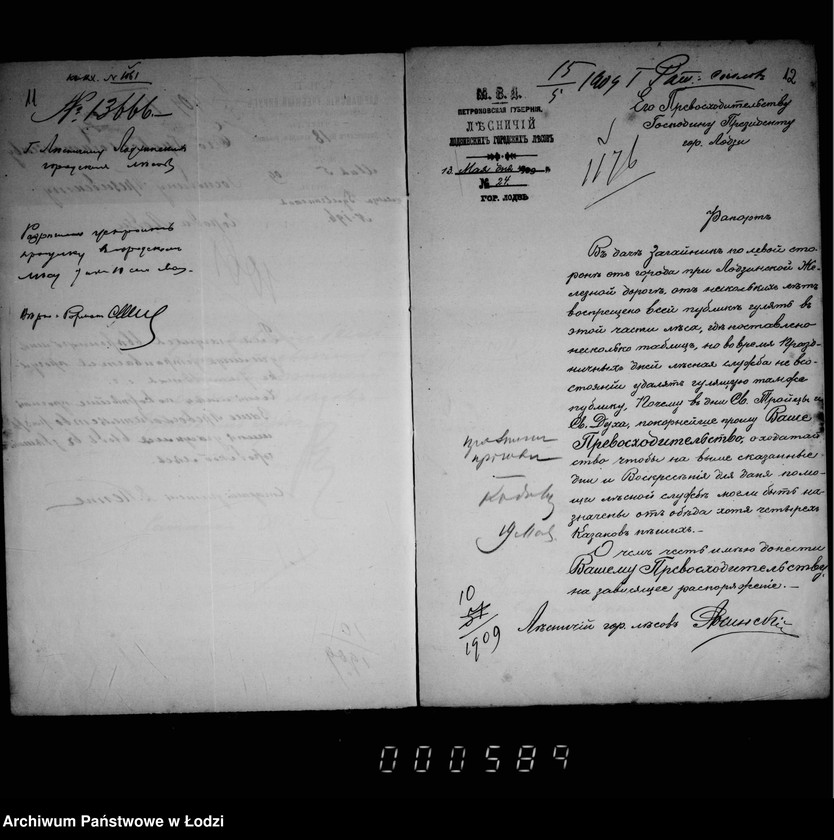 11
№ 13666
Г. Лѣсничему Лодзинскихъ
городскихъ лѣсовъ
Разрѣшаю устроить
прогулку въ городскомъ
лѣсу
12
15/5 1909 I
М. В. Д.
ПЕТРОКОВСКАЯ ГУБЕРНІЯ.
ЛѢСНИЧІЙ
ЛОДЗИНСКИХЪ ГОРОДСКИХЪ ЛѢСОВЪ
13 Мая дня 1909 г.
№ 24.
ГОР. ЛОДЗЬ
Его Превосходительству
Господину Президенту
гор. Лодзи
1176
Рапортъ
Въ дачѣ Загайникъ по лѣвой сто-
ронѣ отъ города при Лодзинской Же-
лезной дорогѣ, отъ несколькихъ лѣтъ
воспрещено всей публикѣ гулять въ
этой части лѣса, гдѣ поставлено
несколько таблицъ, но во время Празд-
ничныхъ дней лѣсная служба не въ со-
стояніи удалять гулящую тамже
публику. Почему въ дни Св. Тройцы и
Св. Духа, покорнейше прошу Ваше
Превосходительство, о ходатай
ство чтобы на выше сказанные
дни и Воскресенія для даня помо-
щи лѣсной службѣ могли быть на-
значены отъ обѣда хотя четырехъ
Казаковъ пѣшихъ. —
О чемъ честь имѣю донести
Вашему Превосходительству,
на зависящее распоряженіе. —
19 Мая
10
1909
Лѣсничій гор. лѣсовъ
000589
Archiwum Państwowe w Łodzi